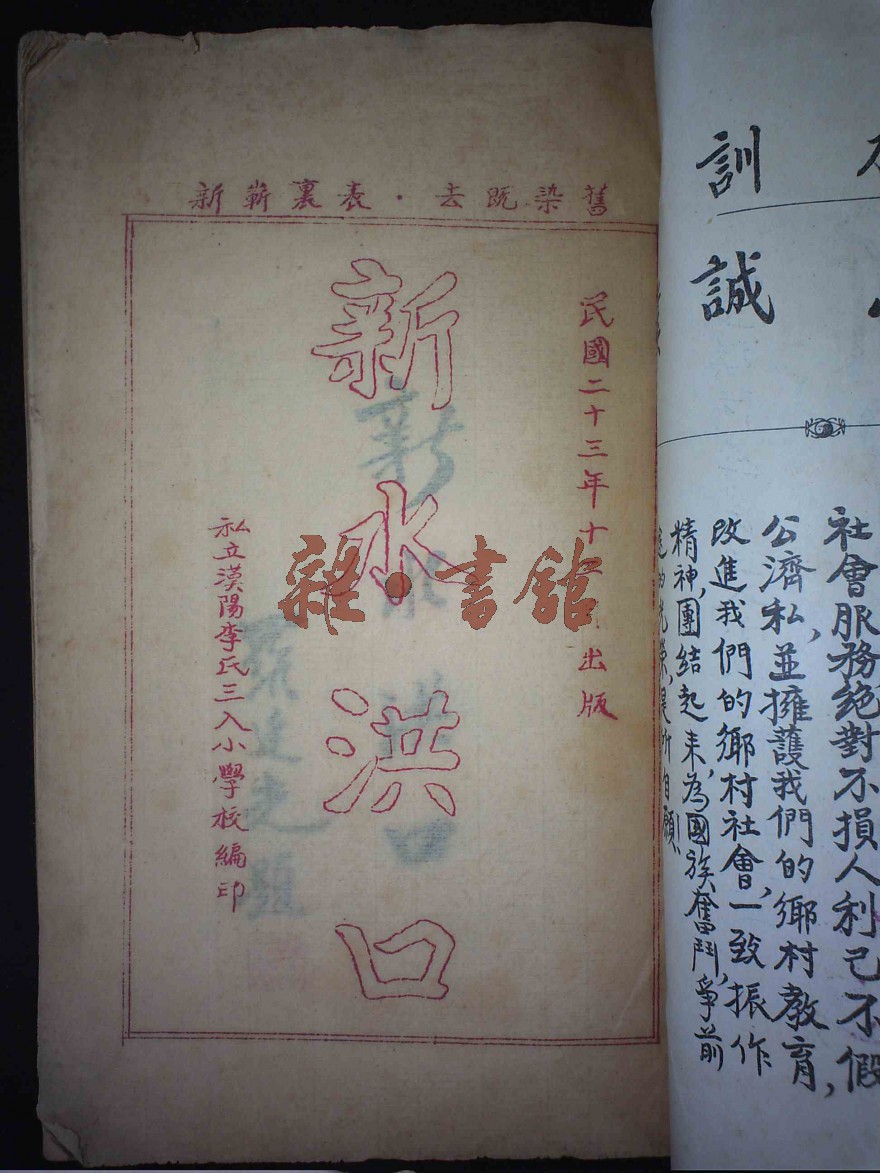 舊染既去·表裏嶄新
民國二十三年十
出版
新水洪口
私立漢陽李氏三入小學校編印
雜·書館
訓
誠
社會服務絕對不損人利己不假
公濟私,並擁護我們的鄉村教育,
改進我們的鄉村社會,一致振作
精神,團結起來,為國族奮鬥,爭前